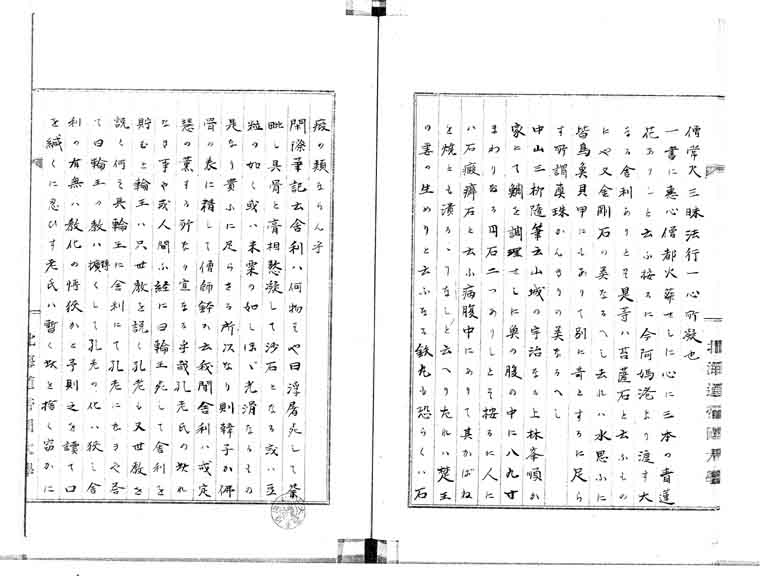 僧常欠三昧法行一心所凝也
一書に恵心僧都火葬せしに心に三本の青蓮
花ありしと云ふ按るに今阿媽港より渡す大
なる舎利ありとそ是等ハ苔薩石と云ふもの
にや又金剛石の美なるへし去れハ水思ふに
皆鳥魚貝甲にもありて別に奇とするに足ら
す所謂眞珠かんの美なるへし
中山三柳随筆云山城の宇治なる上林峯順か
家にて鯛を調理せしに奥の腹の中に八九寸
まわりなる円石二つありしとそ按るに人に
ハ石瘕癖石と云ふ病腹中にありて其かばね
を焼とも潰るゝなしと云へりたれハ楚王
の妻の生めりと云ふなる鉄丸も恐らくハ石
瘕の類ならん乎
閑際筆記云舎利ハ何物そや曰浮屠死して荼
毗し具骨と膏相愁凝して沙石となる或ハ豆
粒の如く或ハ米粟の如しほゞ光滑なるもの
是なり貴ふに足らさる所以なり則韓子か佛
骨の表に精して僧師錬か云我聞舎利ハ戒定
慧の薫する所なり宣なる乎哉孔老氏の欺れ
なき事や或人問ふ経に曰輪王死して舎利を
貯むと輪王ハ只世教を説く孔老も又世教を
説く何そ具輪王に舎利にて孔老になきや答
て曰輪王の教ハ擴くして孔老の化ハ狭し舎
利の有無ハ教化の將狭かと予則之を讀て口
を緘くに忍ひす老氏ハ暫く炊と捨く宻かに